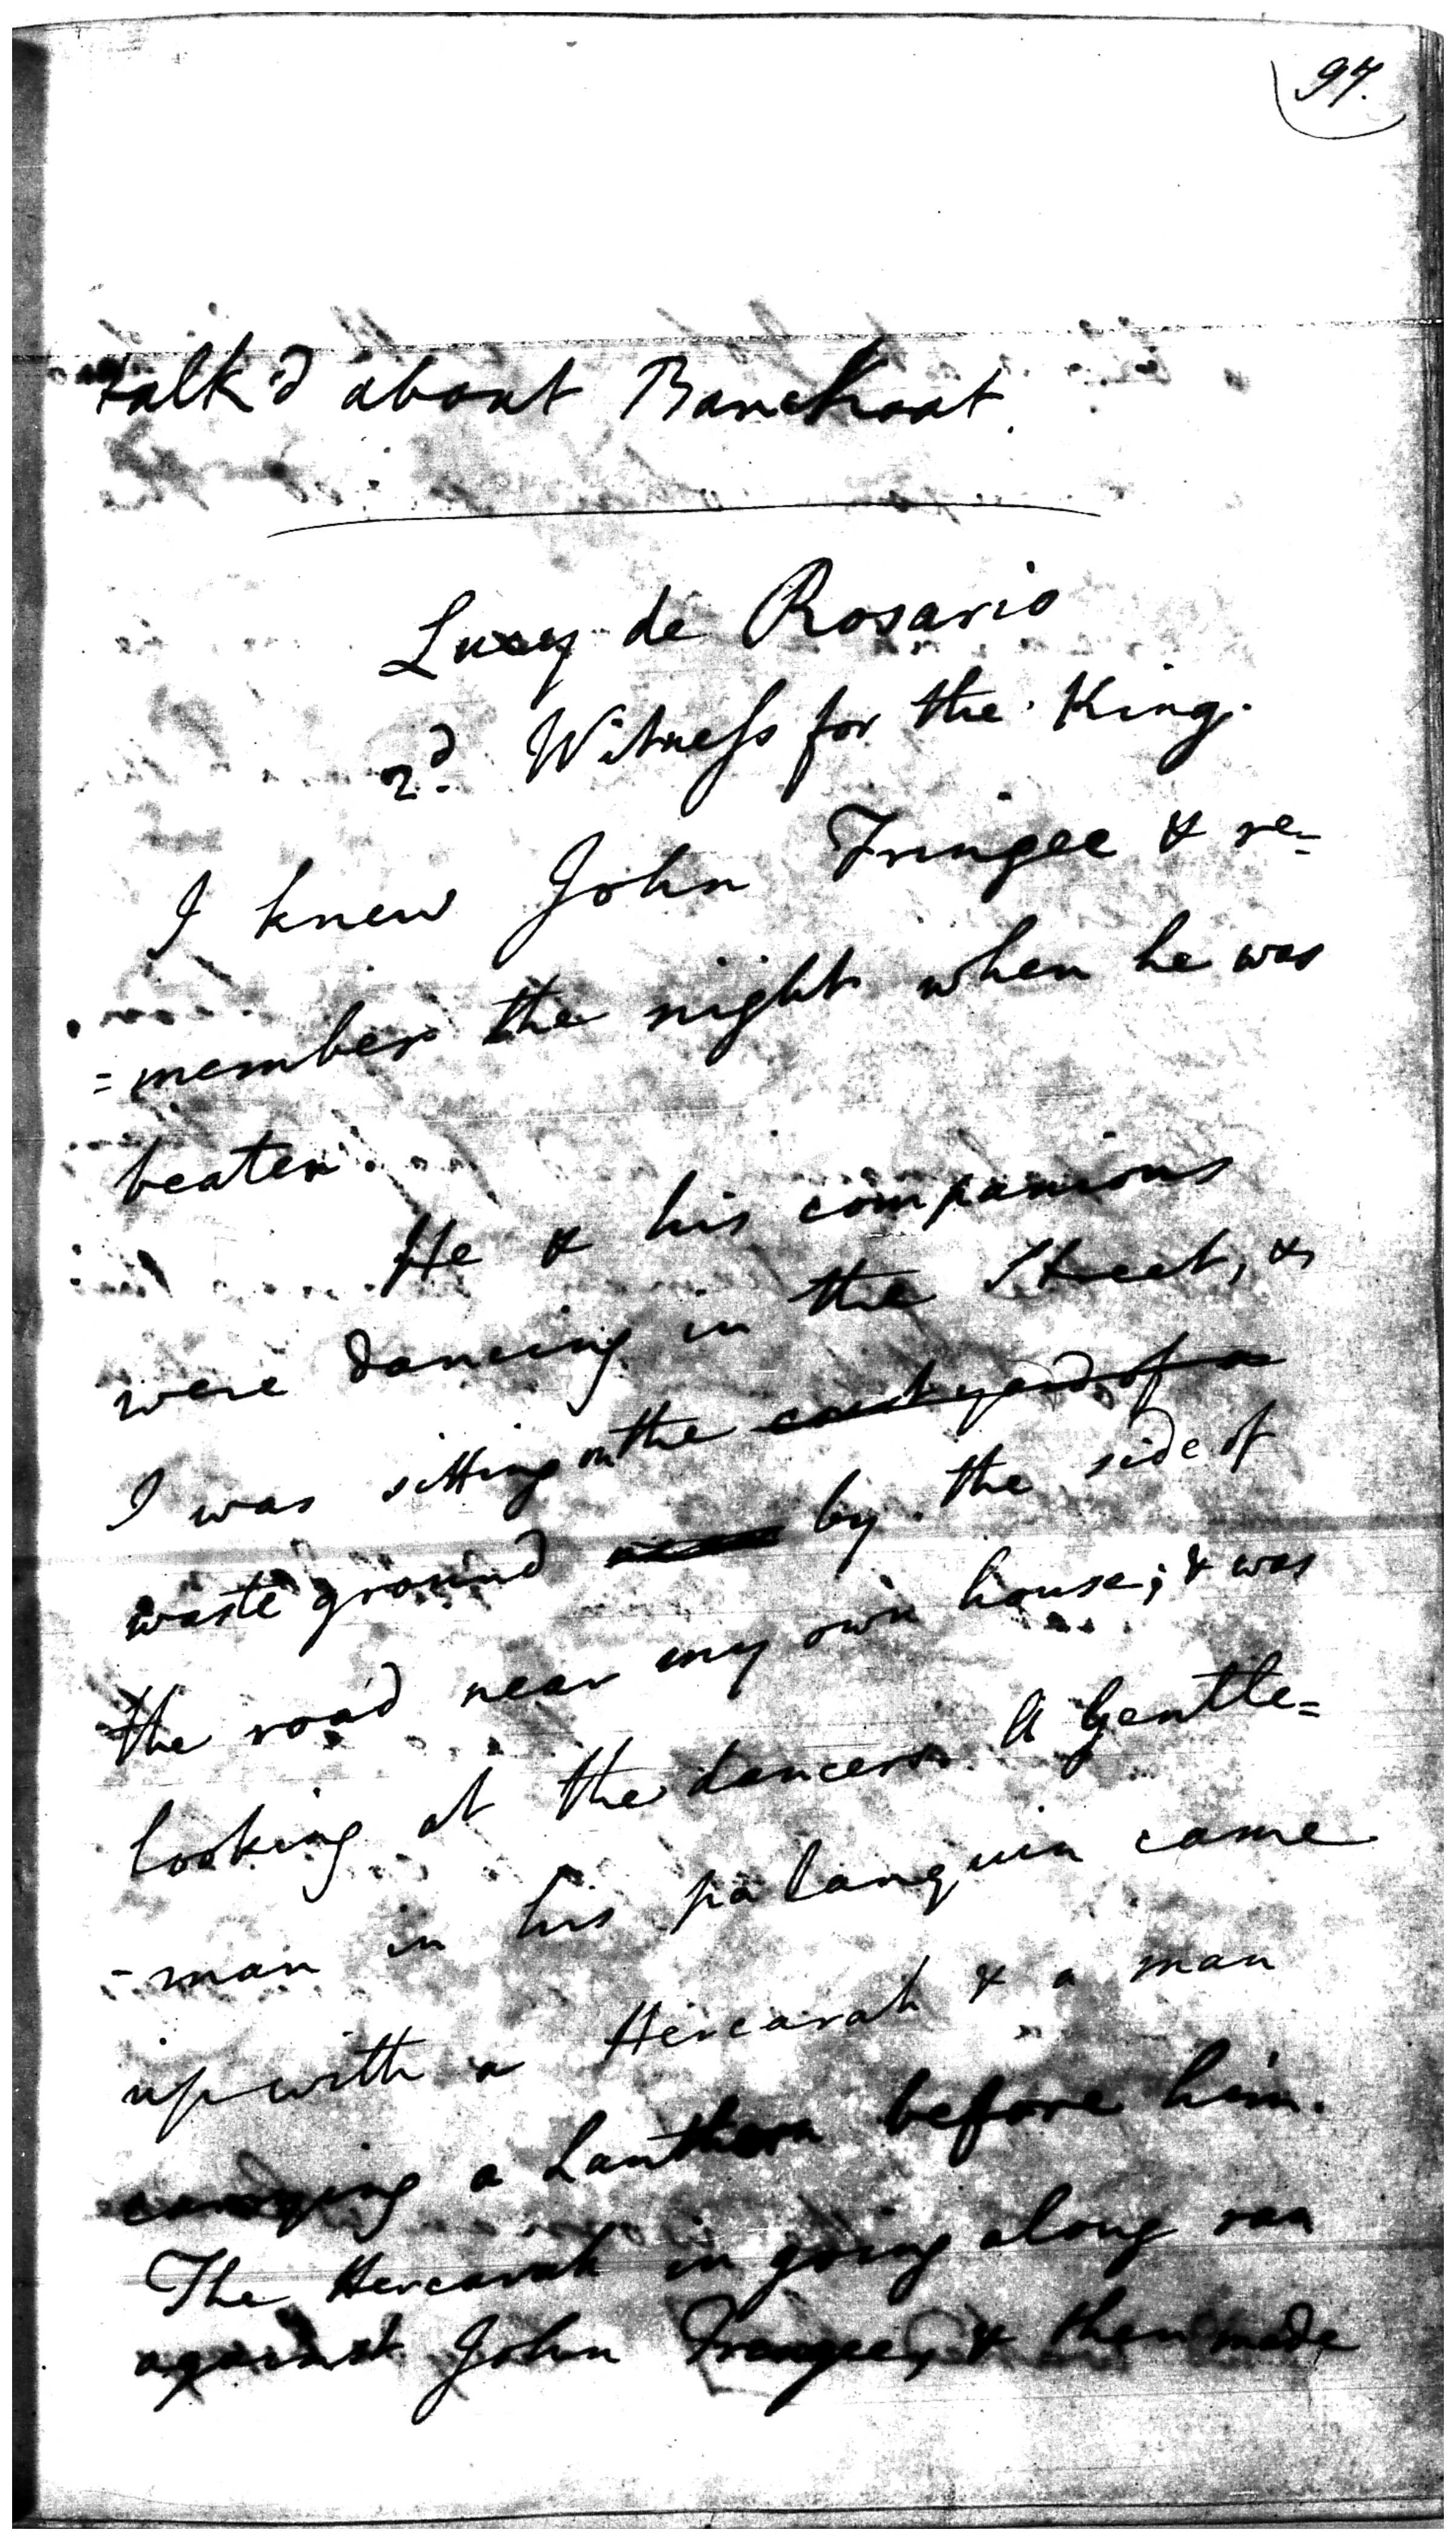 97.
talk'd about Banchoat.
Lucy de Rosario
2d. Witness for the King.
I knew John Fringee & re=
=member the night when he was
beaten.
He & his companions
were dancing in the Street, &
I was sitting on the court yard of a
waste ground by the side of
the road near my own house; & was
looking at the dancers. A Gentle=
-man in his palanquin came
up with a Hercarah & a man
carrying a Lanthorn before him.
The Hercarah in going along ran
against John Frangee, & then made